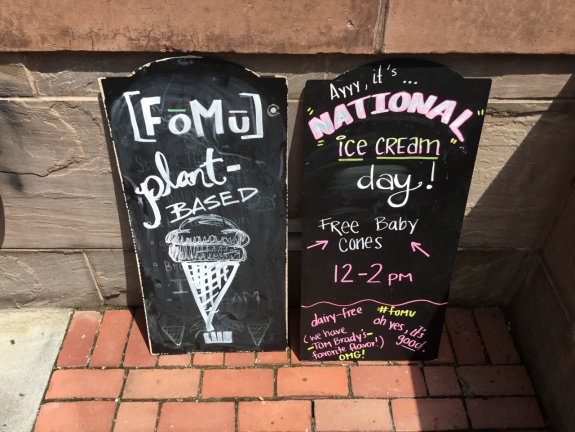 [FōMū]
plant-
BASED
Ayyy, it's...
"NATIONAL"
ice cream
day!
Free Baby
Cones
12-2 pm
dairy-free
(we have
-Tom Brady's-
favorite flavor!)
OMG!
#fomu
oh yes, it's
good.